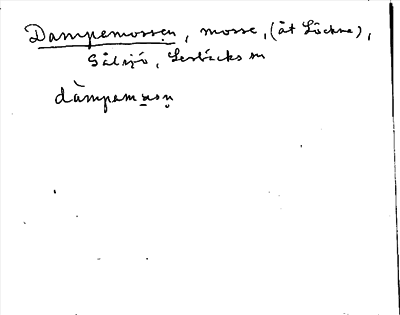 Dampemossen, mosse, (åt Löckna),
Gåsjö, Lerbäcks sn
dàmpemo̱sn̥